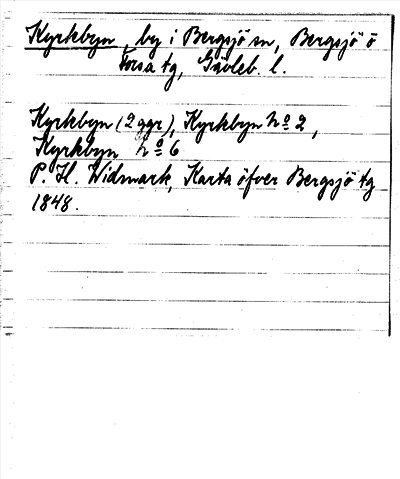 Kyrkbyn, by i Bergsjö sn, Bergsjö o
Forsa tg, Gävleb. l.
Kyrkbyn (2 ggr), Kyrkbyn No 2,
Kyrkbyn No 6
P. H. Widmark, Karta öfver Bergsjö tg
1848.